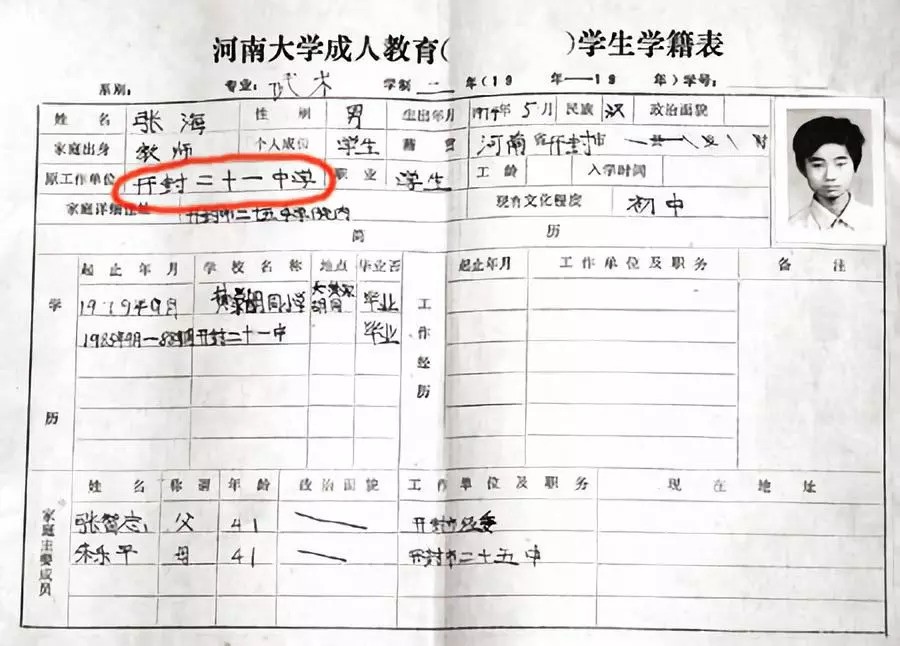 河南大学成人教育( )学生学籍表
系别： 专业：武术 学制 二 年(19 年——19 年)学号：
姓名 张海 性别 男 生出年月 1974年5月 民族 汉 政治面貌
家庭出身 教师 个人成份 学生 籍贯 河南省开封市
原工作单位 开封二十一中学 职业 学生 工龄 入学时间
家庭详细住址 开封市二十五中家院内 现有文化程度 初中
简 历
学历 起止年月 学校名称 地点 毕业否 工作经历 起止年月 工作单位及职务 备注
1979年9月 胡同小学 毕业
开封二十一中 毕业
家庭主要成员 姓名 称谓 年龄 政治面貌 工作单位及职务 现在地址
张智忠 父 41 开封市经委
朱乐平 母 41 开封市二十五中